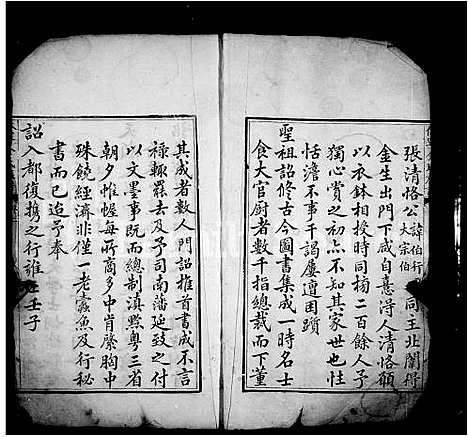 張清恪公諱伯行大宗伯同王北闈得
金生出門下咸自喜得人清恪顧
以衣鉢相授時同榜二百餘人予
獨心賞之初亦不知其家世也性
恬澹不事干謁屢遭困躓
聖祖詔修古今圖書集成一時名士
食大官厨者數千指總裁而下董
其成者數人門詔推首書成不言
祿輒罷去及予司南藩延致之付
以文墨事既而總制滇黔粵三省
朝夕帷幄每所商多中肯綮胸中
殊饒經濟非僅一老蠹魚及行秘
書而已迨予奉
詔入都復携之行雍正壬子